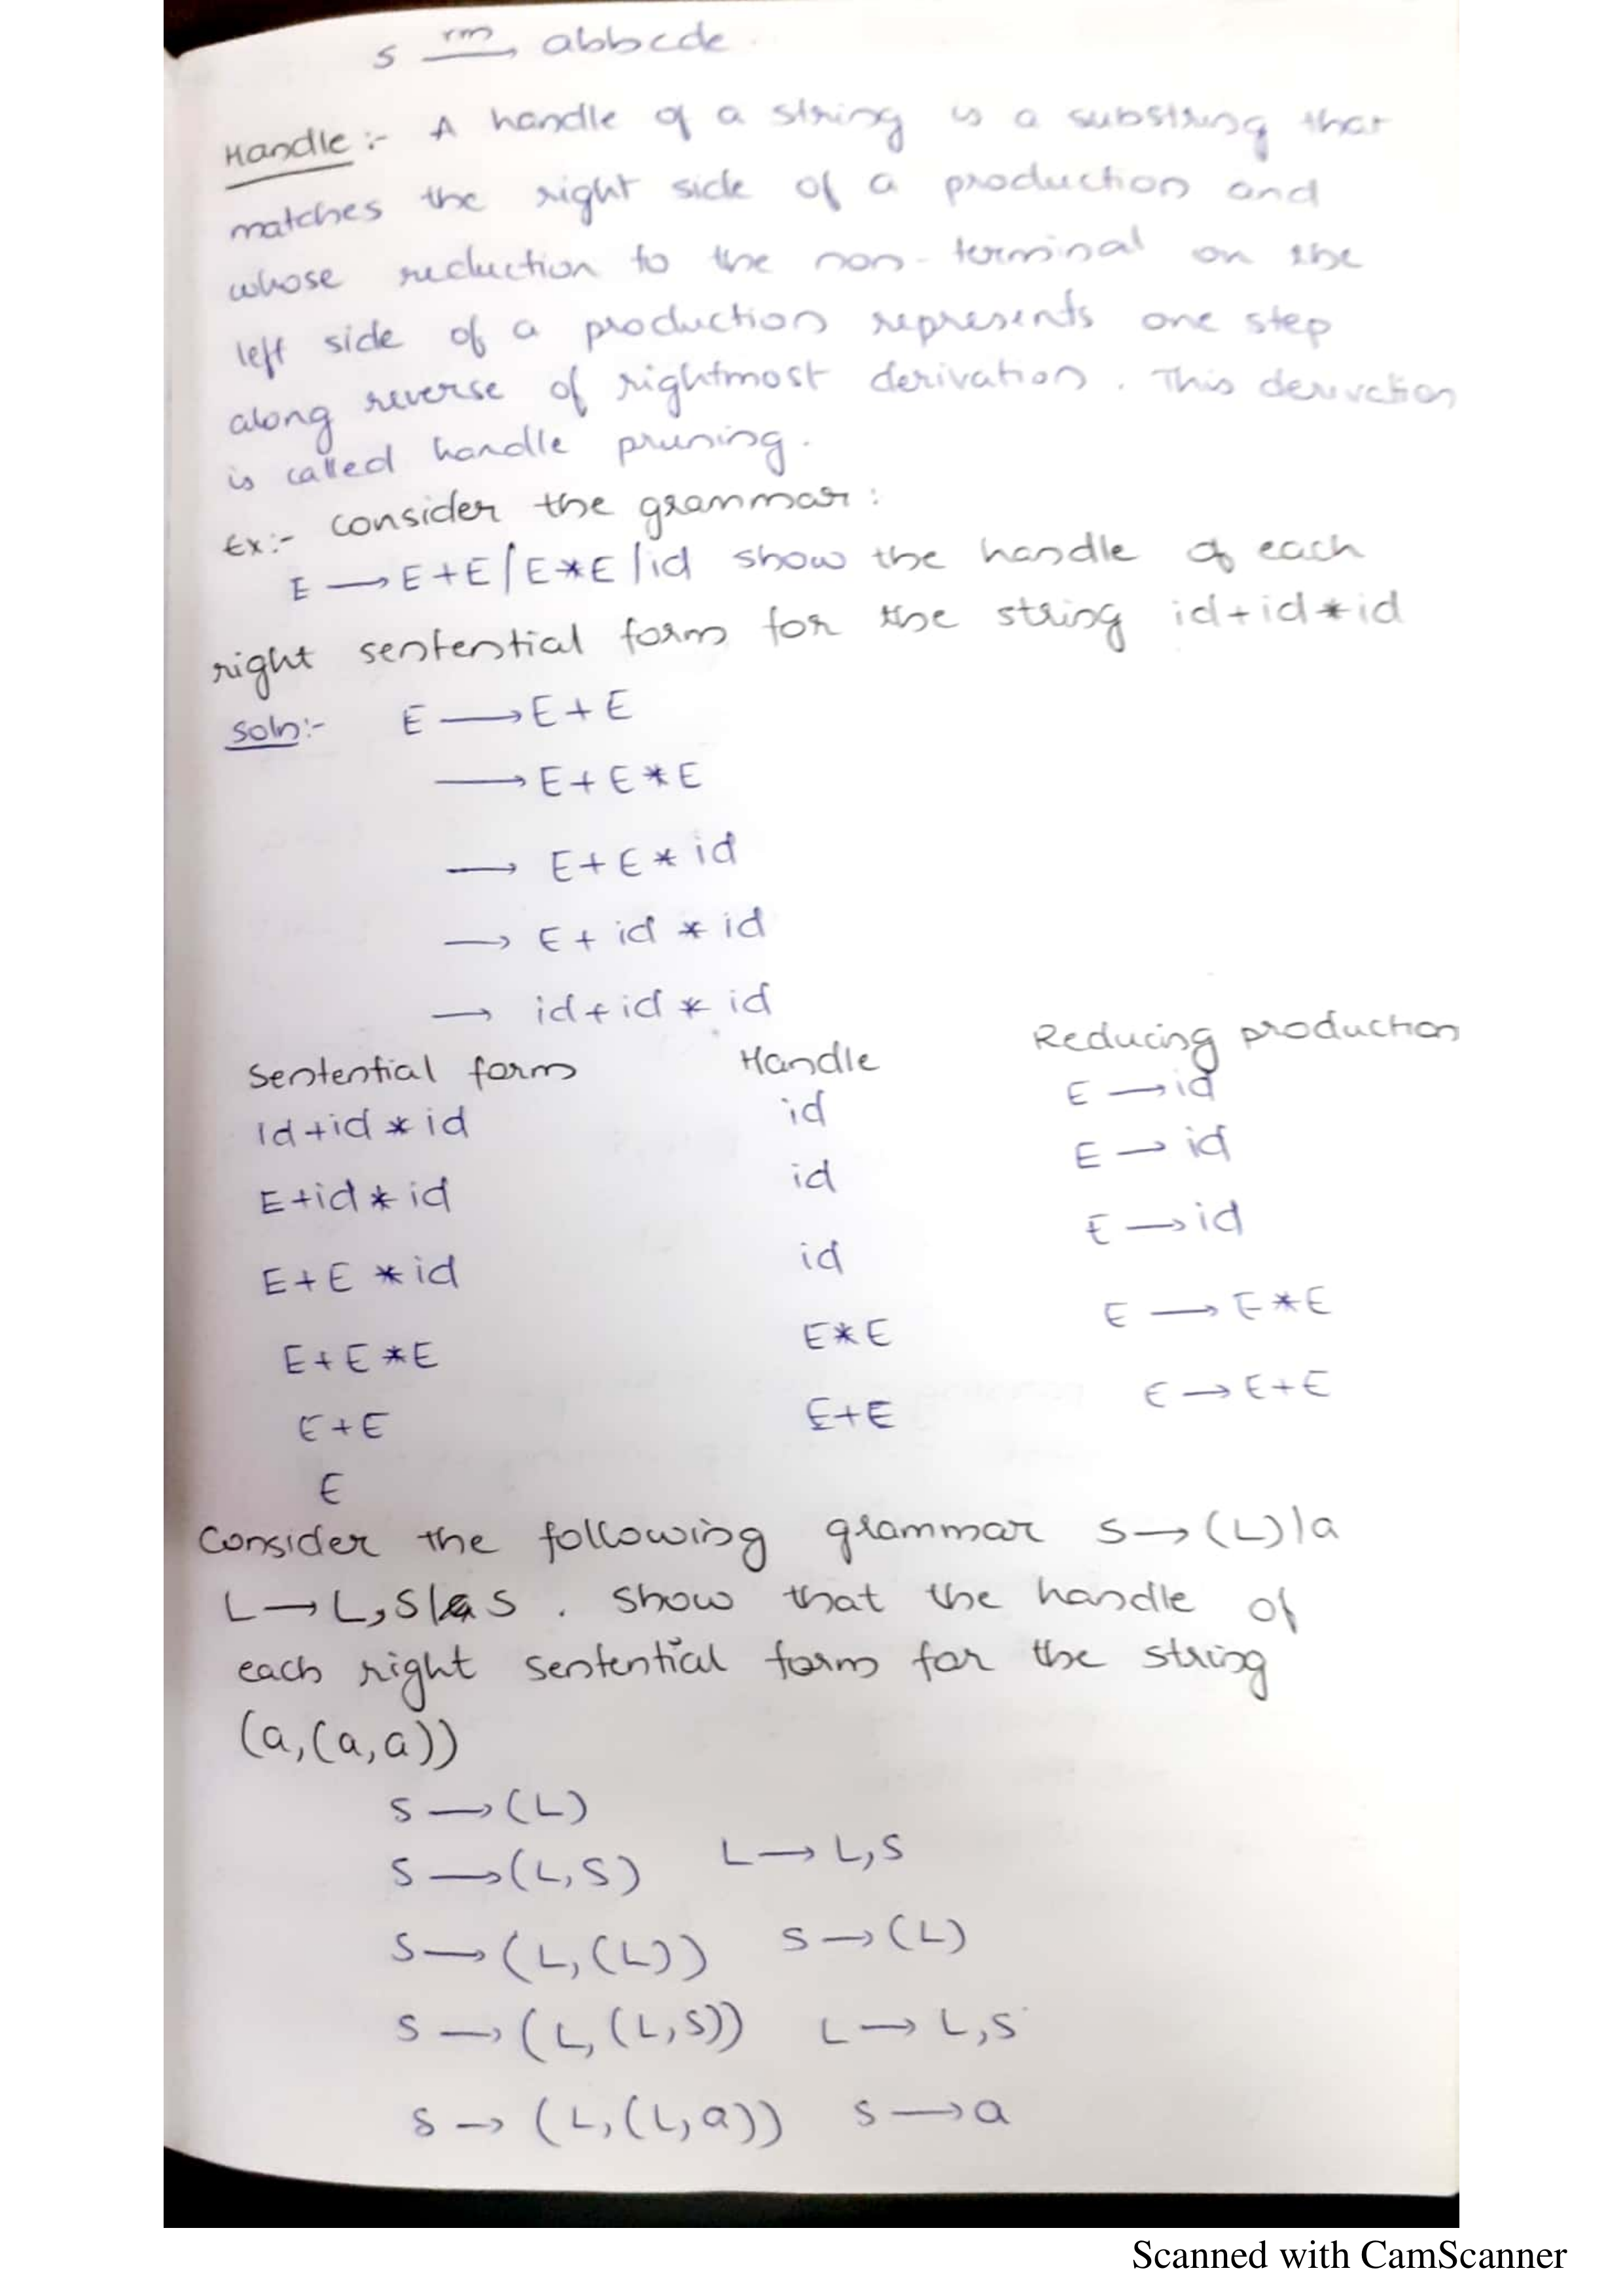 S rm→ abbcde.
Handle :- A handle of a string is a substring that
matches the right side of a production and
whose reduction to the non-terminal on the
left side of a production represents one step
along reverse of rightmost derivation. This derivation
is called handle pruning.
Ex:- consider the grammar:
E → E+E/E*E/id show the handle of each
right sentential form for the string id+id*id
Soln:- E → E+E
→ E+E*E
→ E+E*id
→ E+id*id
→ id+id*id
Sentential form Handle Reducing production
Id+id*id id E → id
E+id*id id E → id
E+E*id id E → id
E+E*E E*E E → E*E
E+E E+E E → E+E
E
Consider the following grammar S → (L)|a
L → L,S|S. Show that the handle of
each right sentential form for the string
(a,(a,a))
S → (L)
S → (L,S) L → L,S
S → (L,(L)) S → (L)
S → (L,(L,S)) L → L,S
S → (L,(L,a)) S → a
Scanned with CamScanner